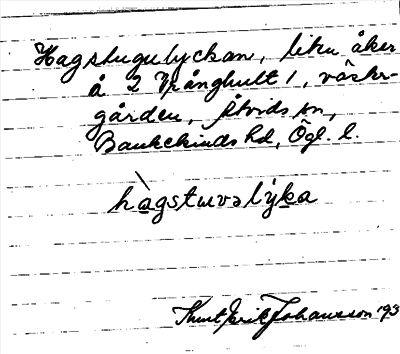 Hagstugulyckan, liten åker
å 2 Vrånghult 1, väster-
gården, Åtvids sn,
Bankekinds hd, Ögl. l.
hàgstuvəlýka
Knut Erik Johansson '93